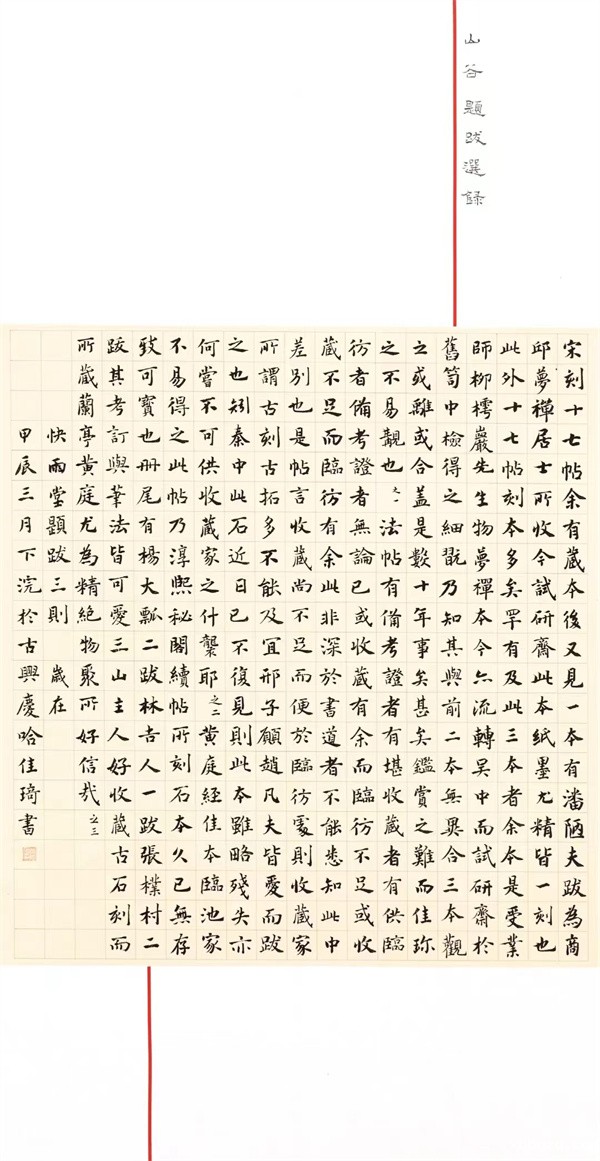 山谷題跋選錄
宋刻十七帖余有藏本後又見一本有潘陋夫跋為商
邱夢禪居士所收今試研齋此本紙墨尤精皆一刻也
此外十七帖刻本多矣罕有及此三本者余本是受業
師柳樗巖先生物夢禪本今亦流轉吴中而試研齋於
舊笥中檢得之細翫乃知其與前二本無異合三本觀
之或離或合盖是數十年事矣甚矣鑑賞之難而佳珎
之不易覯也之一法帖有備考證者有堪收藏者有供臨
彷者備考證者無論已或收藏有余而臨彷不足或收
藏不足而臨彷有余此非深於書道者不能悉知此中
差別也是帖言收藏尚不足而便於臨彷處則收藏家
所謂古刻古拓多不能及宜邢子願趙凡夫皆愛而跋
之也矧秦中此石近日已不復見則此本雖略殘失亦
何嘗不可供收藏家之什襲耶之二黄庭經佳本臨池家
不易得之此帖乃淳熙秘閣續帖所刻石本久已無存
致可寳也册尾有楊大瓢二跋林吉人一跋張樸村二
跋其考訂與筆法皆可愛三山主人好收藏古石刻而
所藏蘭亭黄庭尤為精絕物聚所好信哉之三
快雨堂題跋三則 歲在
甲辰三月下浣於古興慶哈佳琦書